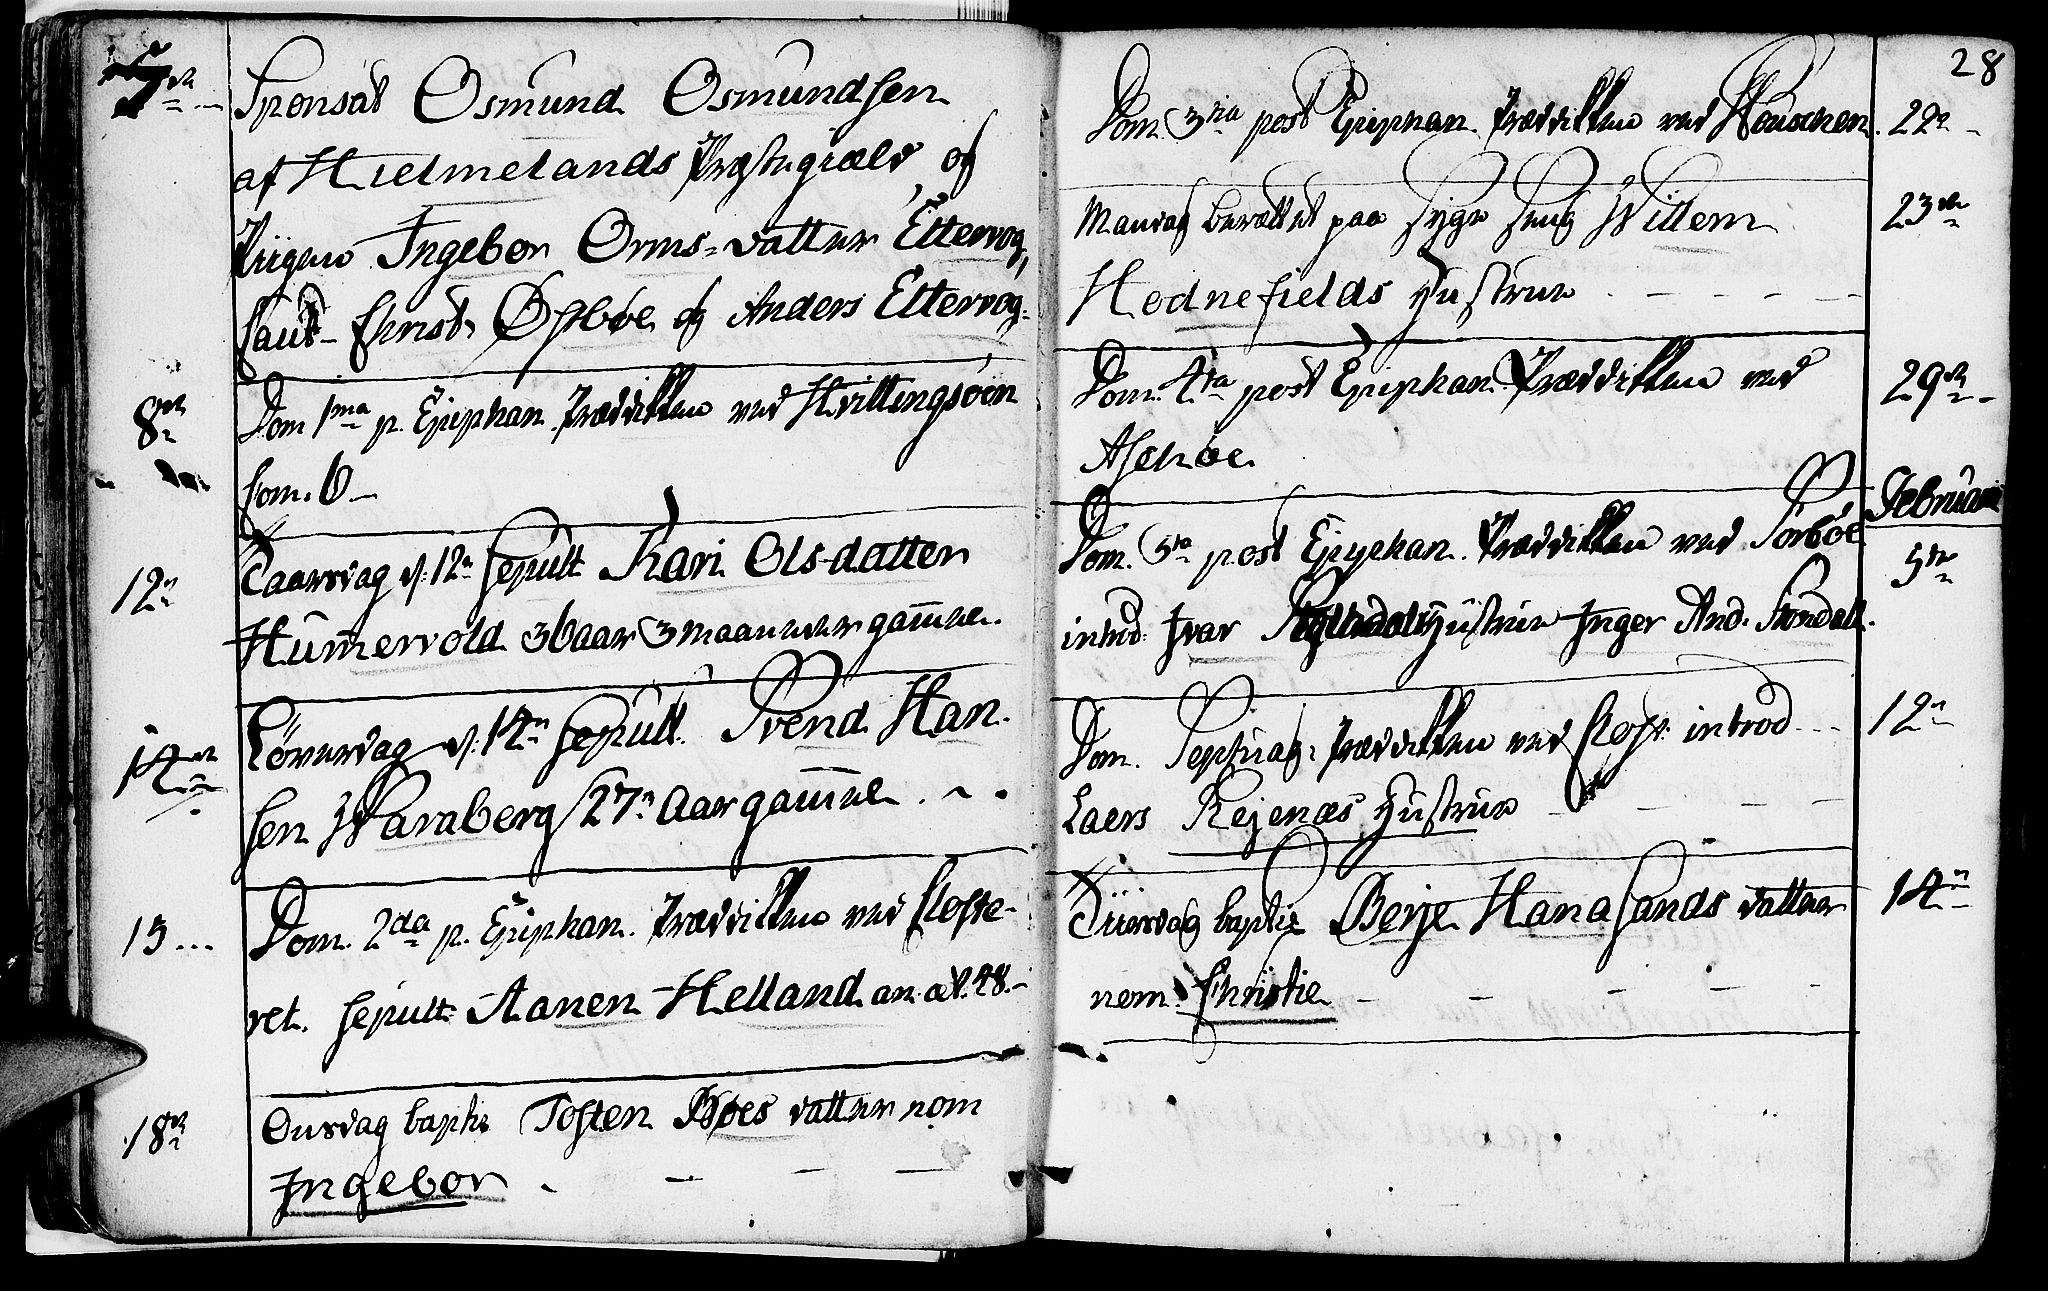 7de Sponsat Osmund Osmundsen
af Hielmelands Præstegiæld og
Piigen Ingebor Orms-datter Ettervog,
Caut. Christ. Østbøe og Anders Ettervog.
8de Dom 1ma p. Epiphan. Prædikken ved Hvittingsöen
com. 6
12te Taarsdag d: 12te sepult Kari Ols-datter
Hummervold 36 aar 3 maaneder gammel.
14de Löverdag d: 14de sepult. Svend Han-
sen Waraberg 27 Aar gammel.
15 Dom. 2da p. Epiphan. Prædikken ved Closte-
ret. sepult Aanen Helland an. æt. 48.
18de Onsdag bapt: Tosten Bøes datter nom
Ingebor
28
Dom. 3tia post Epiphan. Prædikken ved Houschen. 22de
Mandag berættet paa Syge Seng Willem 23de
Hodnefields Hustrue
Dom. 4ta post Epiphan. Prædikken ved 29de
Aschøe
Februarii
Dom. 5ta post Epiphan. Prædikken ved Sörböe 5te
introd: Ivar Hustrue Inger And.
Dom. Septuag: Prædikken ved Clost: introd 12te
Laers Rejenæs Hustrue
Tiirsdag baptis Berje Hanasands datter 14de
nom. Christie